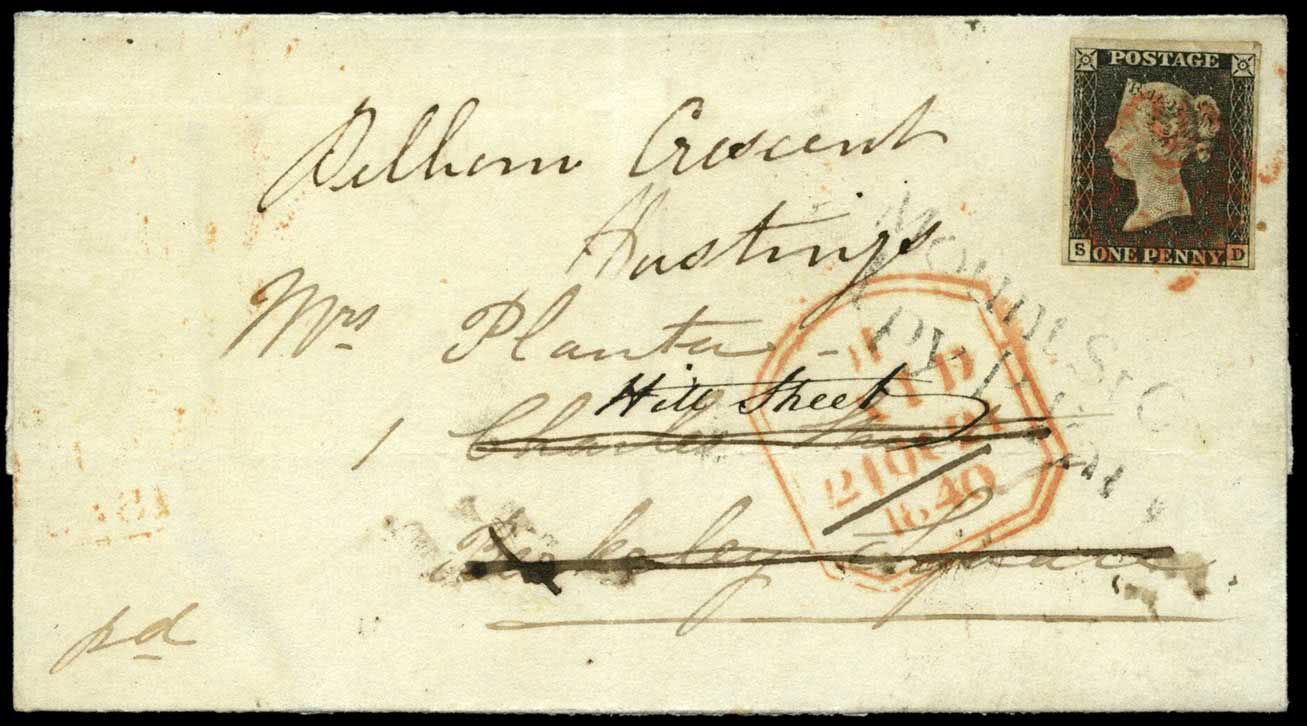 POSTAGE
S ONE PENNY D
Pelham Crescent
Hastings
Mrs Planta
Hill Street
1 Charles Street
Berkeley Square
pd
11
21 OC 21
1840
Mount St G
Py Paid